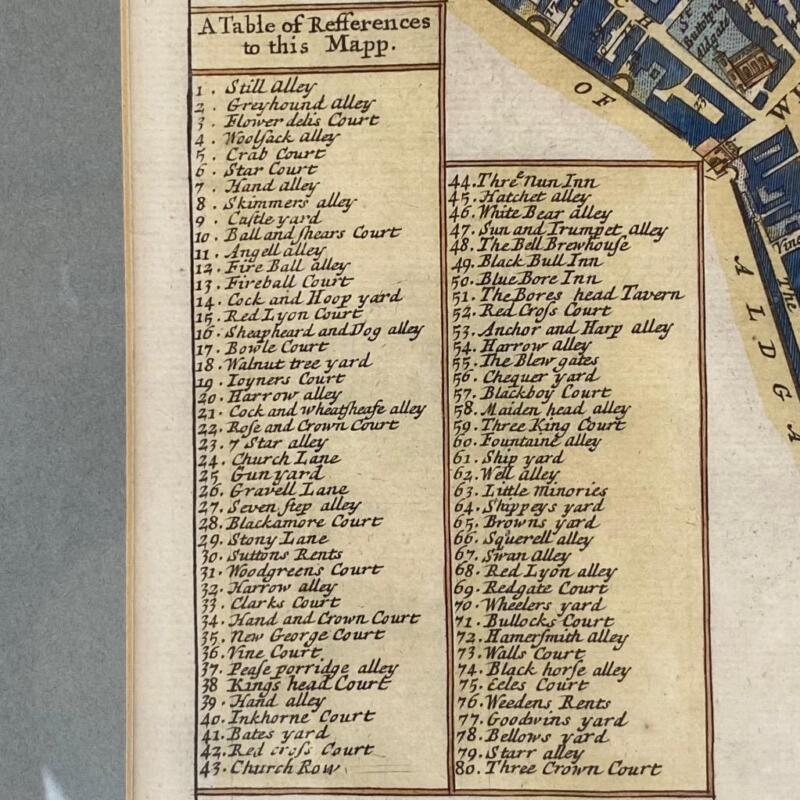 A Table of Refferences
to this Mapp.
1. Still Alley
2. Greyhound alley
3. Flower delis Court
4. Woolſack alley
5. Crab Court
6. Star Court
7. Hand alley
8. Skimmers alley
9. Caſtle yard
10. Ball and ſhears Court
11. Angell alley
12. Fire Ball alley
13. Fireball Court
14. Cock and Hoop yard
15. Red Lyon Court
16. Sheapheard and Dog alley
17. Bowle Court
18. Walnut tree yard
19. Ioyners Court
20. Harrow alley
21. Cock and wheatſheafe alley
22. Roſe and Crown Court
23. 7 Star alley
24. Church Lane
25 Gun yard
26. Gravell Lane
27. Seven ſtep alley
28. Blackamore Court
29. Stony Lane
30. Suttons Rents
31. Woodgreens Court
32. Harrow alley
33. Clarks Court
34. Hand and Crown Court
35. New George Court
36. Vine Court
37. Peaſe porridge alley
38 Kings head Court
39. Hand alley
40. Inkhorne Court
41. Bates yard
42. Red croſs Court
43. Church Row
44. Three Nun Inn
45. Hatchet alley
46. White Bear alley
47. Sun and Trumpet alley
48. The Bell Brewhouſe
49. Black Bull Inn
50. Blue Bore Inn
51. The Bores head Tavern
52. Red Croſs Court
53. Anchor and Harp alley
54. Harrow alley
55. The Blew gates
56. Chequer yard
57. Blackboy Court
58. Maiden head alley
59. Three King Court
60. Fountaine alley
61. Ship yard
62. Well alley
63. Little Minories
64. Shippeys yard
65. Browns yard
66. Squerell alley
67. Swan Alley
68. Red Lyon alley
69. Redgate Court
70. Wheelers yard
71. Bullocks Court
72. Hamerſmith alley
73. Walls Court
74. Black horſe alley
75. Eeles Court
76. Weedens Rents
77. Goodwins yard
78. Bellows yard
79. Starr alley
80. Three Crown Court
OF
ALDGA
The